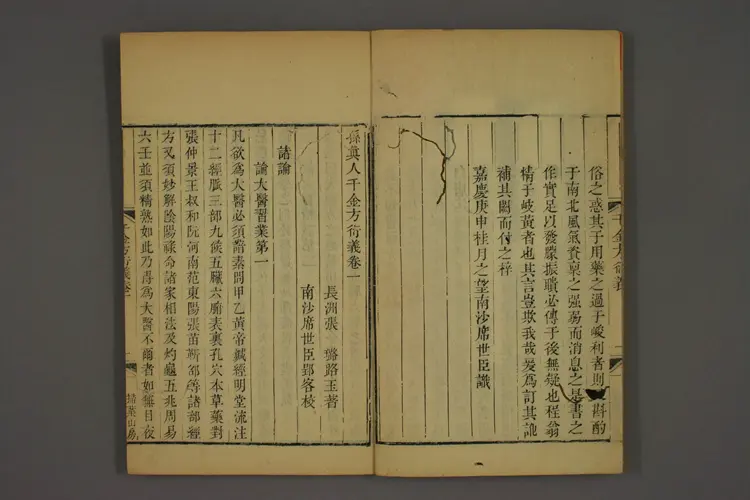 俗之惑其于用藥之過于峻利者則斟酌
于南北風氣資稟之强弱而消息之是書之
作實足以發矇振聵必傳于後無疑也程翁
精于岐黃者也其言豈欺我哉爰爲訂其訛
補其闕而付之梓
嘉慶庚申桂月之望南沙席世臣識
孫真人千金方衍義卷一
長洲張璐路玉著
南沙席世臣郢客校
諸論
論大醫習業第一
凡欲爲大醫必須諳素問甲乙黃帝鍼經明堂流注
十二經脈三部九候五臟六腑表裏孔穴本草藥對
張仲景王叔和阮河南范東陽張苗靳邵等諸部經
方又須妙解陰陽祿命諸家相法及灼龜五兆周易
六壬並須精熟如此乃得爲大醫不爾者如無目夜
千金方衍義卷一
一
掃葉山房